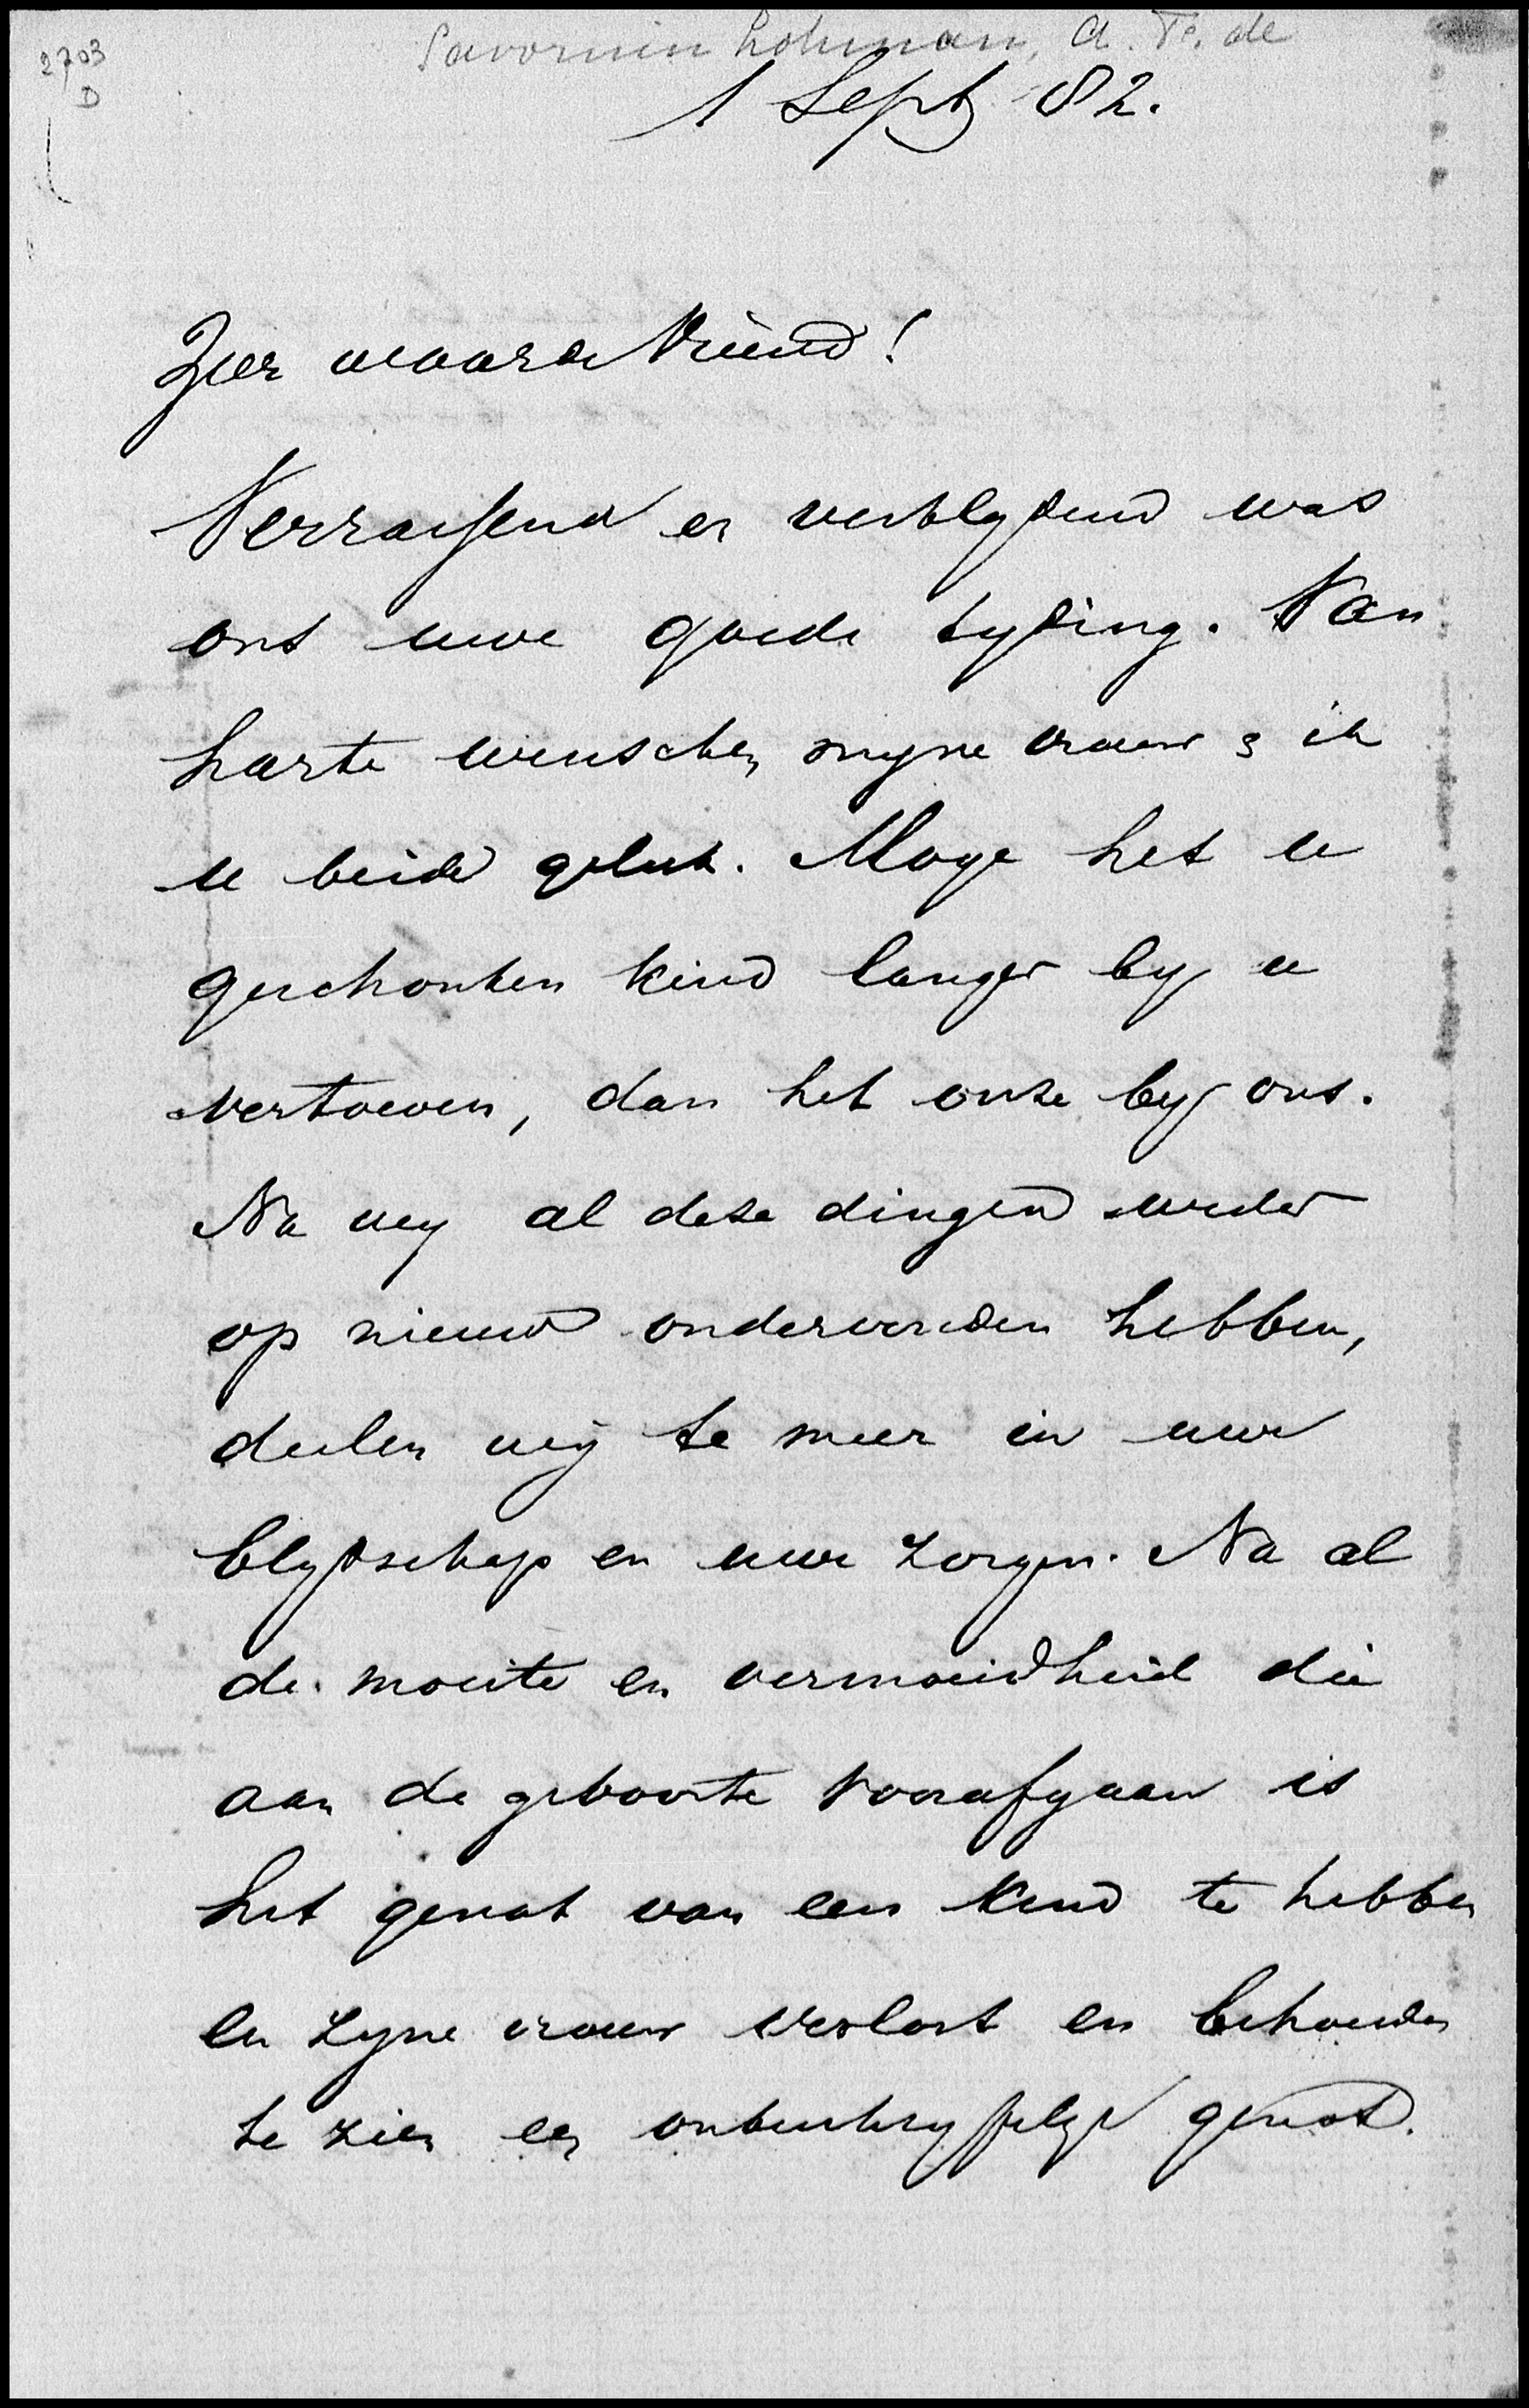 2703
D
Savornin Lohman, A. F. de
1 Sept 82.
Zeer waarde Vriend!
Verrassend en verblydend was
ons uwe goede tyding. Van
harte wenschen myne vrouw & ik
u beide geluk. Moge het u
geschonken kind langer by u
vertoeven, dan het onze by ons.
Na wy al deze dingen weder
op nieuw ondervonden hebben,
deelen wij te meer in uw
blydschap en uwe zorgen. Na al
de moeite en vermoeidheid die
aan de geboorte voorafgaan is
het genot van een kind te hebben
en zyne vrouw verlost en behouden
te zien een onbeschryfelyk genot.